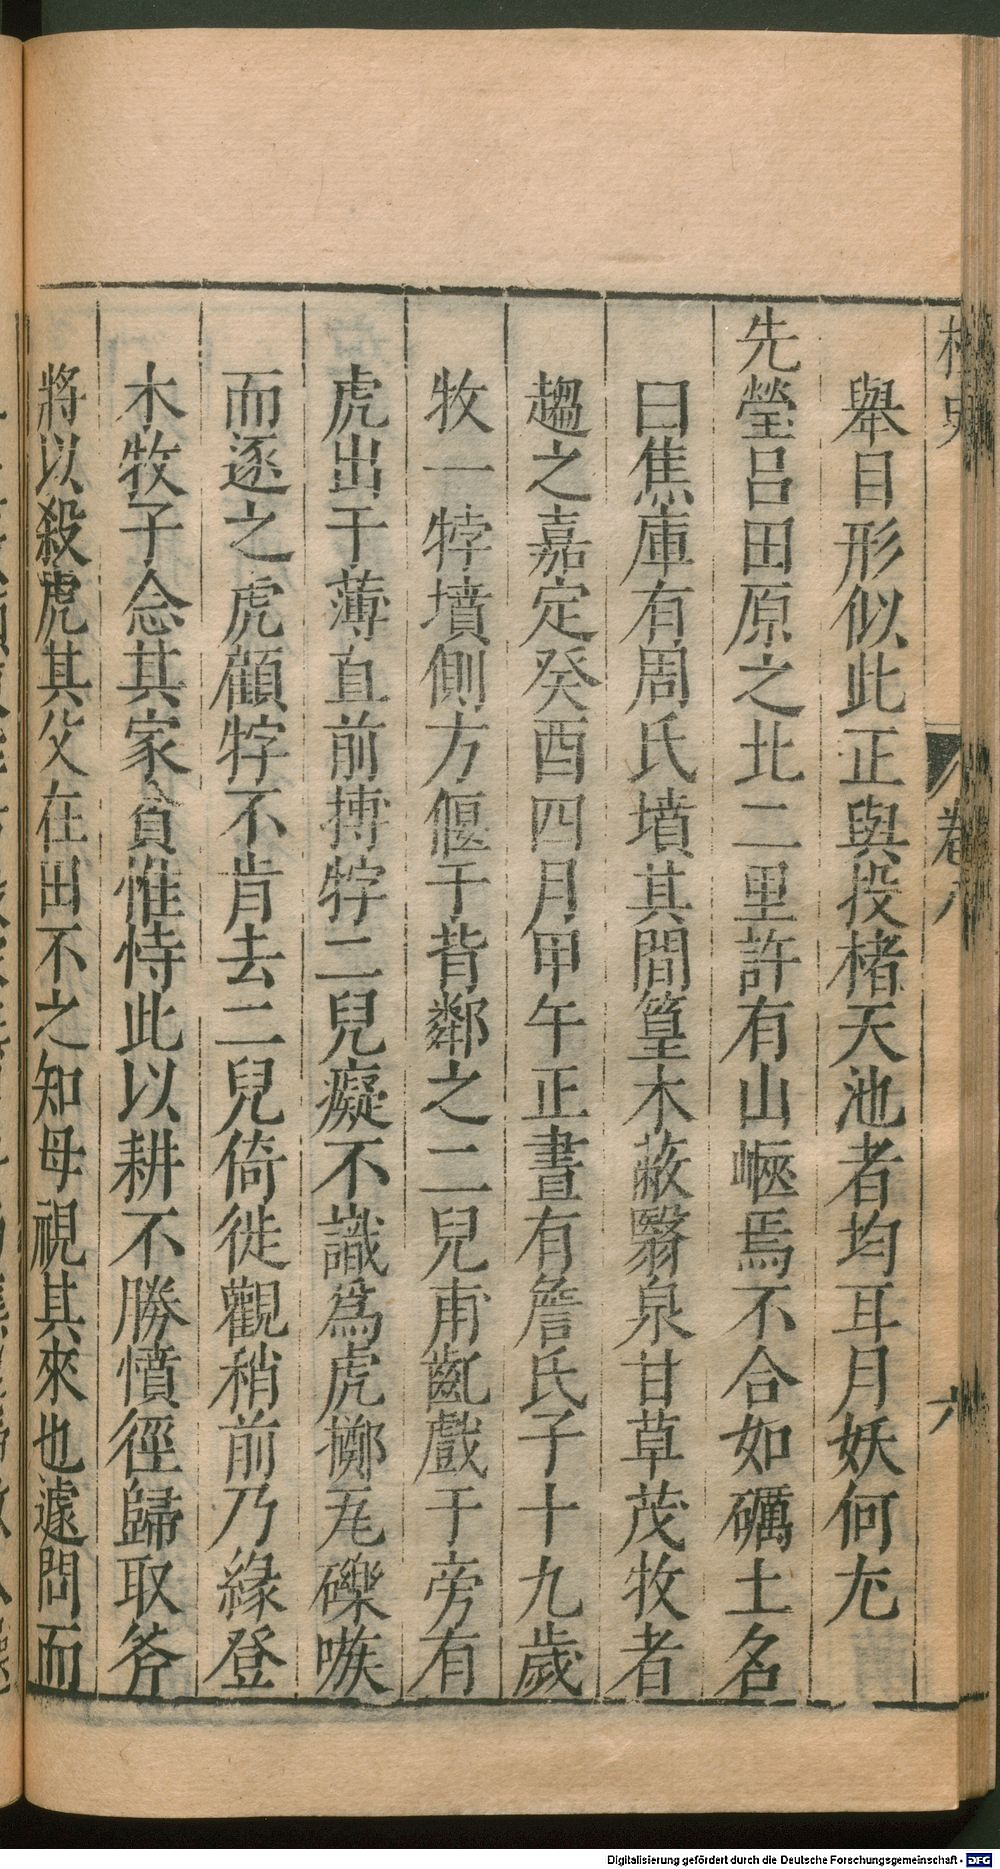 桯史 卷八 六
舉目形似此正與投楮天池者均耳月妖何尤
先塋吕田原之北二里許有山嶇焉不合如礪土名
曰焦庫有周氏墳其間篁木蔽翳泉甘草茂牧者
趨之嘉定癸酉四月甲午正晝有詹氏子十九歲
牧一牸墳側方偃于背鄰之二兒甫齔戲于旁有
虎出于薄直前搏牸二兒癡不識爲虎擲瓦礫嗾
而逐之虎顧牸不肯去二兒倚徙觀稍前乃緣登
木牧子念其家貧惟恃此以耕不勝憤徑歸取斧
將以殺虎其父在田不之知母視其來也遽問而
Digitalisierung gefördert durch die Deutsche Forschungsgemeinschaft - DFG